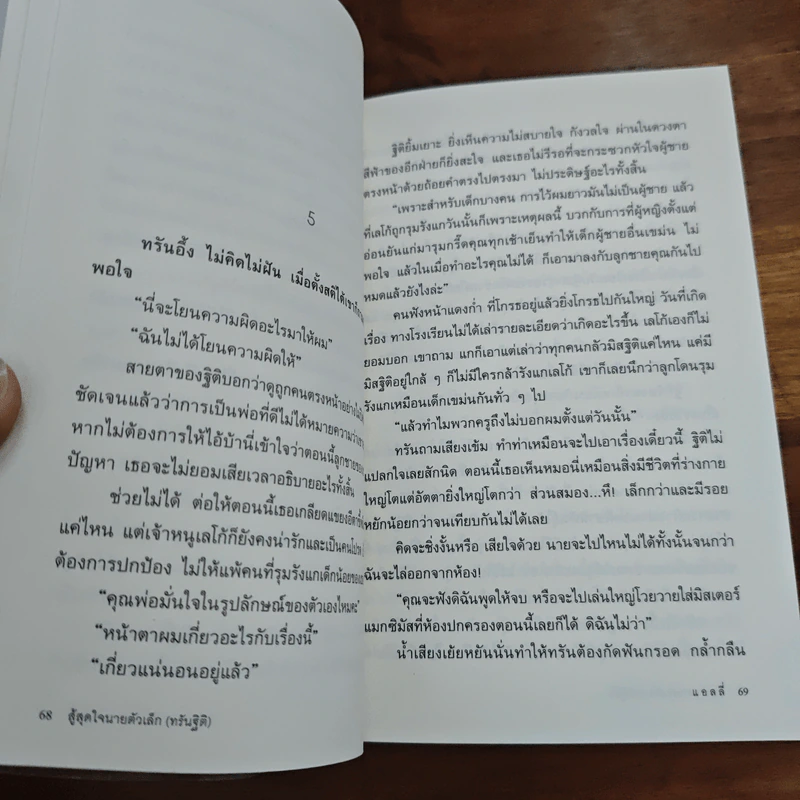 5
ทรันอึ้ง ไม่คิดไม่ฝัน เมื่อตั้งสติได้เขาก็
พอใจ
“นี่จะโยนความผิดอะไรมาให้ผม”
“ฉันไม่ได้โยนความผิดให้”
สายตาของฐิติบอกว่าดูถูกคนตรงหน้าอย่าง
ชัดเจนแล้วว่าการเป็นพ่อที่ดีไม่ได้หมายความว่า
หากไม่ต้องการให้ไอ้บ้านี่เข้าใจว่าตอนนี้ลูกชาย
ปัญหา เธอจะไม่ยอมเสียเวลาอธิบายอะไรทั้งสิ้น
ช่วยไม่ได้ ต่อให้ตอนนี้เธอเกลียดแขยง
แค่ไหน แต่เจ้าหนูเลโก้ก็ยังคงน่ารักและเป็นคน
ต้องการปกป้อง ไม่ให้แพ้คนที่รุมรังแกเด็กน้อย
“คุณพ่อมั่นใจในรูปลักษณ์ของตัวเองไหมคะ”
“หน้าตาผมเกี่ยวอะไรกับเรื่องนี้”
“เกี่ยวแน่นอนอยู่แล้ว”
68 สู้สุดใจนายตัวเล็ก (ทรันฐิติ)
ฐิติยิ้มเยาะ ยิ่งเห็นความไม่สบายใจ กังวลใจ ผ่านในดวงตา
สีฟ้าของอีกฝ่ายก็ยิ่งสะใจ และเธอไม่รีรอที่จะกระซวกหัวใจผู้ชาย
ตรงหน้าด้วยถ้อยคำตรงไปตรงมา ไม่ประดิษฐ์อะไรทั้งสิ้น
“เพราะสำหรับเด็กบางคน การไว้ผมยาวมันไม่เป็นผู้ชาย แล้ว
ที่เลโก้ถูกรุมรังแกวันนั้นก็เพราะเหตุผลนี้ บวกกับการที่ผู้หญิงตั้งแต่
อ่อนยันแก่มารุมกรี๊ดคุณทุกเช้าเย็นทำให้เด็กผู้ชายอื่นเขม่น ไม่
พอใจ แล้วในเมื่อทำอะไรคุณไม่ได้ ก็เอามาลงกับลูกชายคุณกันไป
หมดแล้วยังไงล่ะ”
คนฟังหน้าแดงก่ำ ที่โกรธอยู่แล้วยิ่งโกรธไปกันใหญ่ วันที่เกิด
เรื่อง ทางโรงเรียนไม่ได้เล่ารายละเอียดว่าเกิดอะไรขึ้น เลโก้เองก็ไม่
ยอมบอก เขาถาม แกก็เอาแต่เล่าว่าทุกคนกลัวมิสฐิติแค่ไหน แค่มี
มิสฐิติอยู่ใกล้ ๆ ก็ไม่มีใครกล้ารังแกเลโก้ เขาก็เลยนึกว่าลูกโดนรุม
รังแกเหมือนเด็กเขม่นกันทั่ว ๆ ไป
“แล้วทำไมพวกครูถึงไม่บอกผมตั้งแต่วันนั้น”
ทรันถามเสียงเข้ม ทำท่าเหมือนจะไปเอาเรื่องเดี๋ยวนี้ ฐิติไม่
แปลกใจเลยสักนิด ตอนนี้เธอเห็นหมอนี่เหมือนสิ่งมีชีวิตที่ร่างกาย
ใหญ่โตแต่อัตตายิ่งใหญ่โตกว่า ส่วนสมอง...หึ! เล็กกว่าและมีรอย
หยักน้อยกว่าจนเทียบกันไม่ได้เลย
คิดจะชิ่งงั้นหรือ เสียใจด้วย นายจะไปไหนไม่ได้ทั้งนั้นจนกว่า
ฉันจะไล่ออกจากห้อง!
“คุณจะฟังดิฉันพูดให้จบ หรือจะไปเล่นใหญ่โวยวายใส่มิสเตอร์
แมกซิมัสที่ห้องปกครองตอนนี้เลยก็ได้ ดิฉันไม่ว่า”
น้ำเสียงเย้ยหยันนั่นทำให้ทรันต้องกัดฟันกรอด กล้ำกลืน
แอลลี่ 69